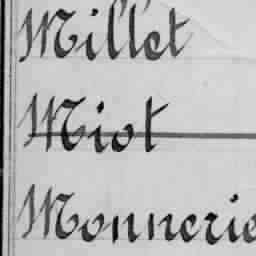 Millet
Miot
Monnerie